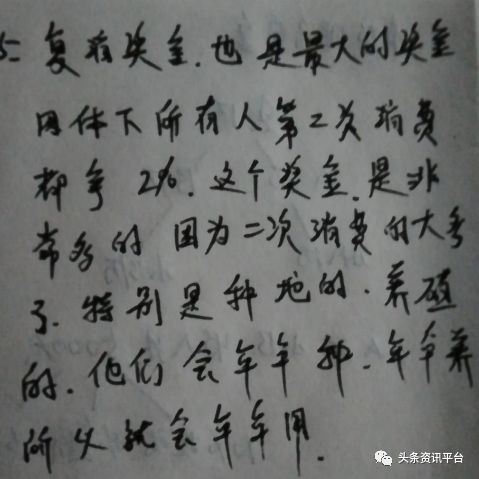 5= 复消奖金.也是最大的奖金
团体下所有人第二次消费
都拿2%.这个奖金.是非
常多的 因为二次消费的太多
了.特别是种地的.养殖
的.他们会年年种.年年养
所以就会年年用.
头条资讯平台